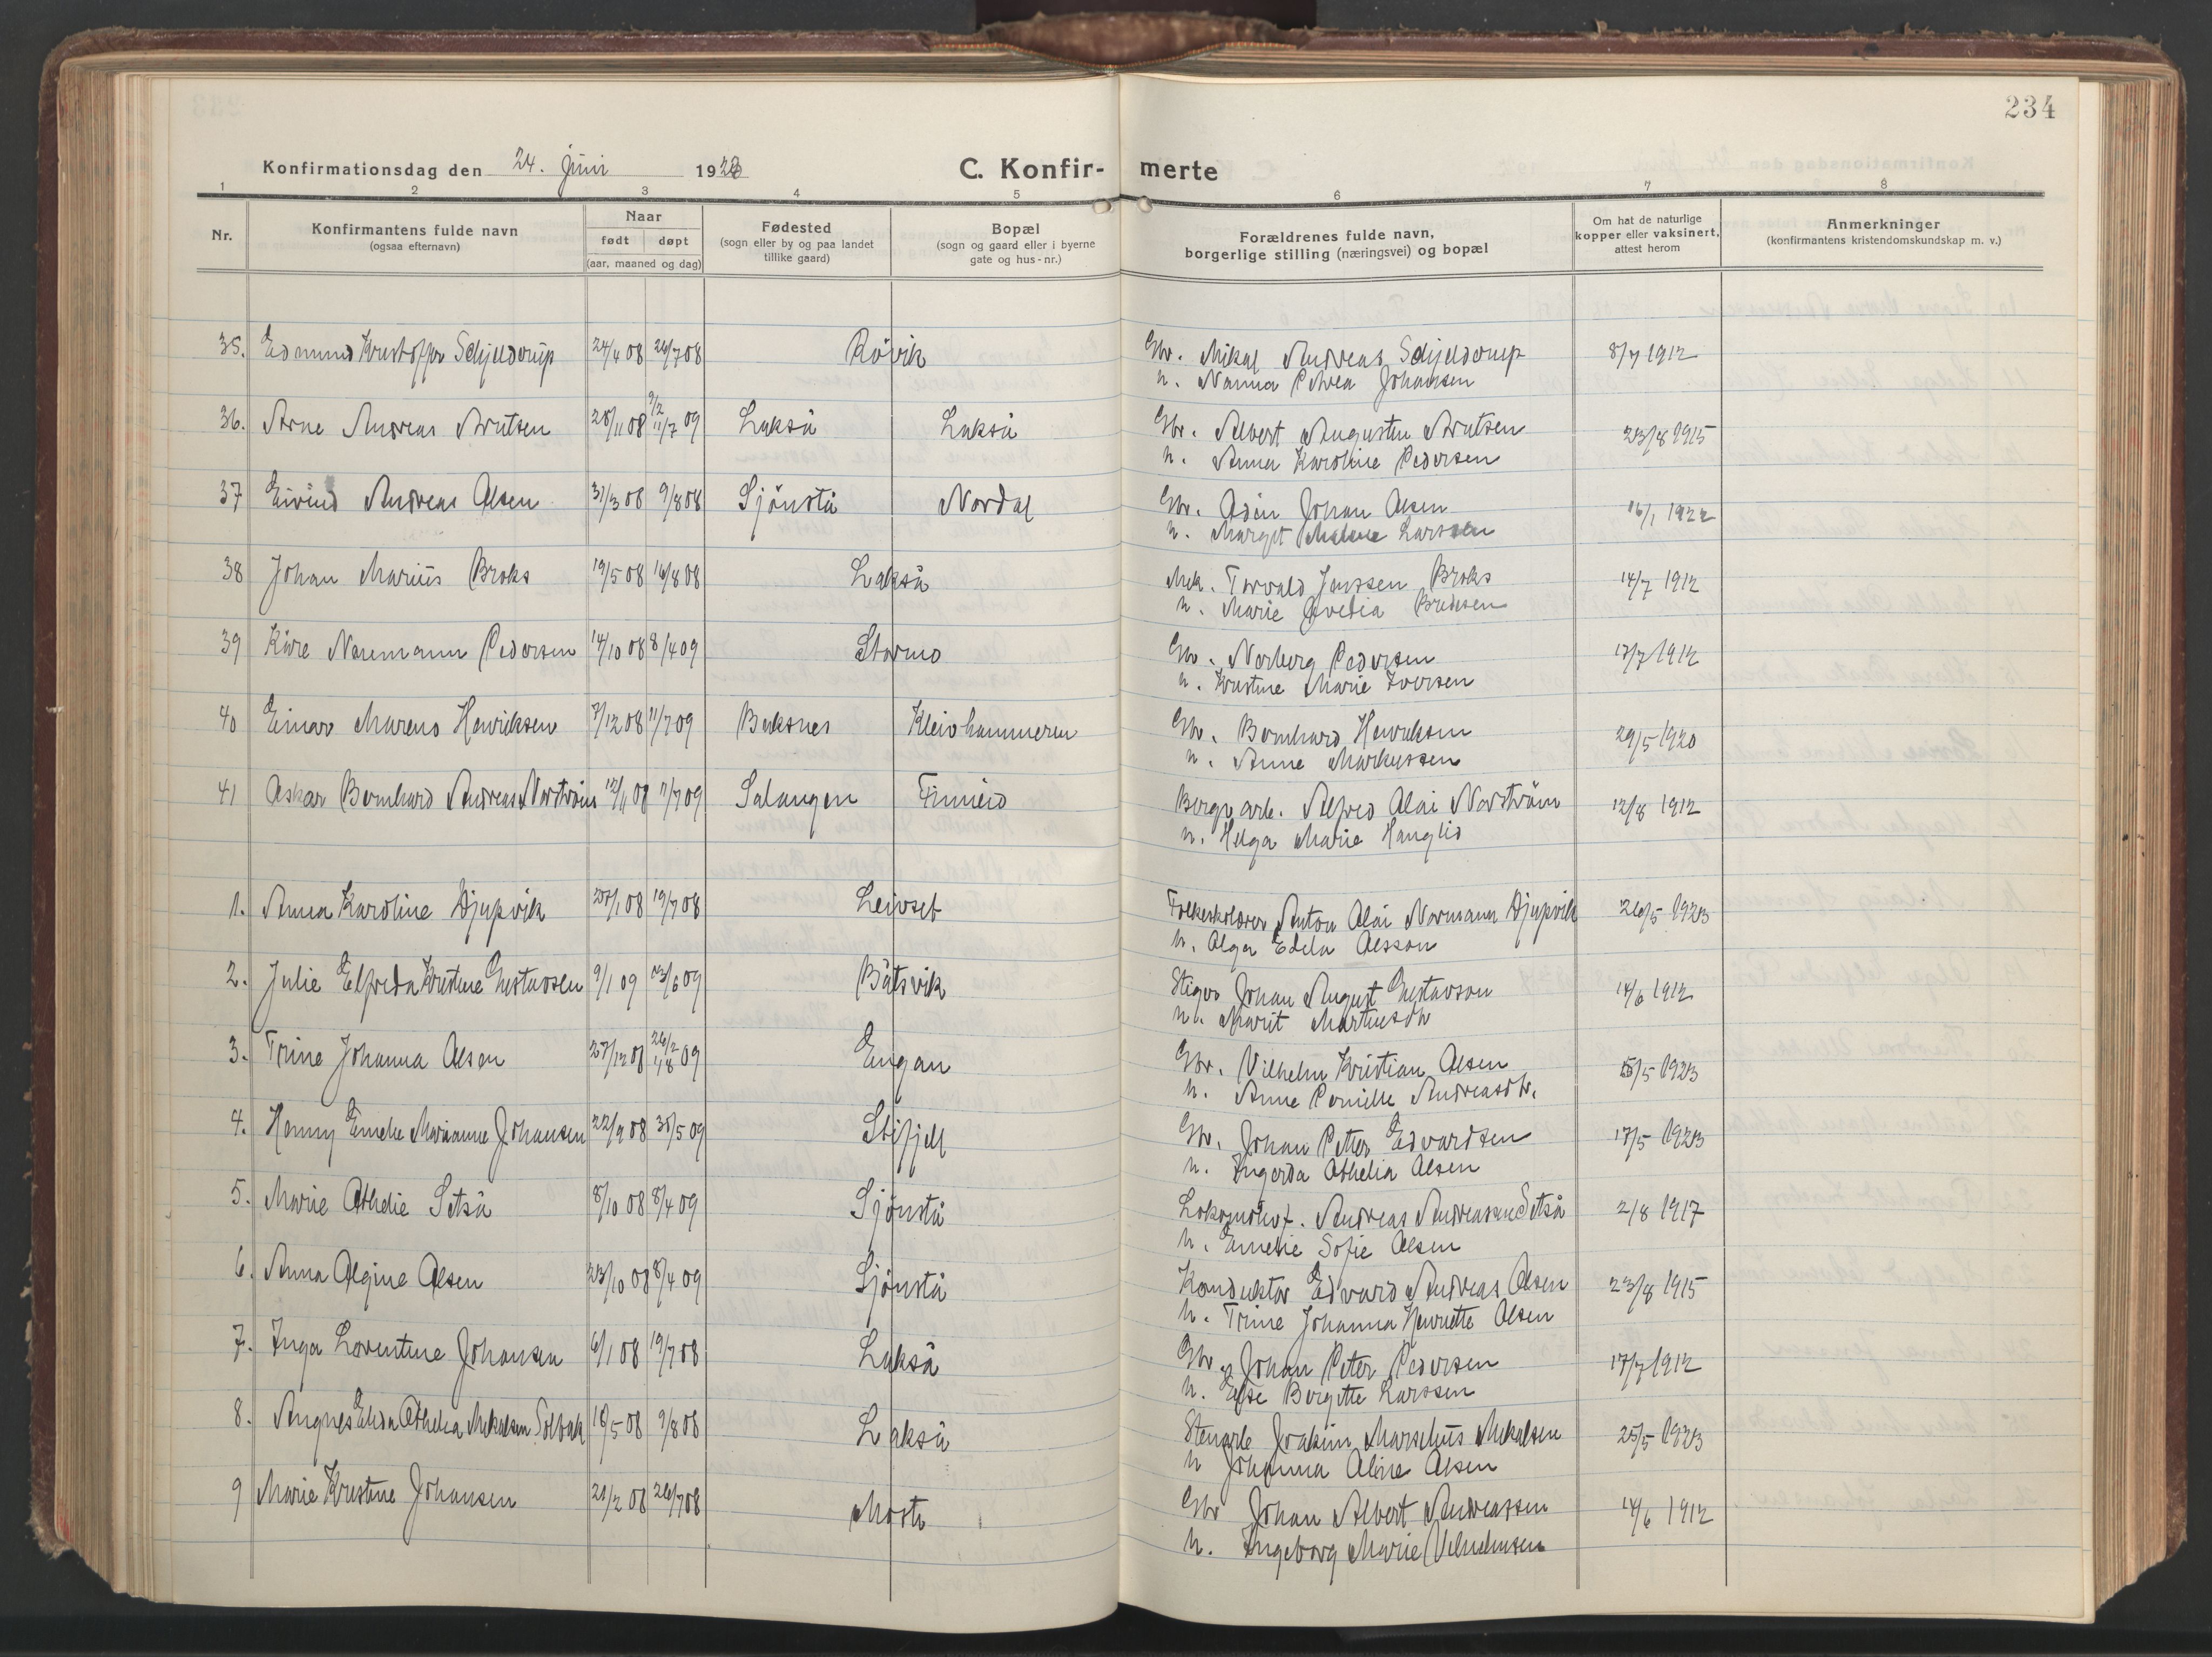 234
Konfirmationsdag den 24. juni 1923
C. Konfirmerte
1 2 3 4 5 6 7 8
Nr.
Konfirmantens fulde navn
(ogsaa efternavn)
Naar
født døpt
(aar, maaned og dag)
Fødested
(sogn eller by og paa landet
tillike gaard)
Bopæl
(sogn og gaard eller i byerne
gate og hus-nr.)
Forældrenes fulde navn,
borgerlige stilling (næringsvei) og bopæl
Om hat de naturlige
kopper eller vaksinert,
attest herom
Anmerkninger
(konfirmantens kristendomskundskap m. v.)
35. Edmund Kristoffer Schjelderup 24/4 08 26/7 08 Røvik Gbr. Mikal Andreas Schjelderup 8/7 1912
h. Nanna Petrea Johansen
36. Arne Andreas Arntsen 28/11 08 9/2 11/7 09 Lakså Lakså Gbr. Albert Augustin Arntsen 23/8 1915
h. Anna Karoline Pedersen
37 Eivind Andreas Olsen 31/3 08 9/8 08 Sjönstå Nordal Gbr. Odin Johan Olsen 16/1 1922
h. Margit Larssen
38 Johan Marius Broks 19/5 08 16/8 08 Lakså Mek. Torvald Jenssen Broks 14/7 1912
h. Marie
39 Kåre Normann Pedersen 14/10 08 8/4 09 Stormo Gbr. Norberg Pedersen 17/7 1912
h. Kristine Marie Iversen
40 Einar Mareno Henriksen 7/12 08 11/7 09 Buksnes Kleivhammeren Gbr. Bernhard Henriksen 29/5 1920
h. Anne Markussen
41 Oskar Bernhard Andreas Nordtröm 12/11 08 11/7 09 Salangen Finneid Bergv. arb. Alfred Olai Nordtröm 12/8 1912
h. Helga Marie Hanglid
1. Anna Karoline Djupvik 27/1 08 19/7 08 Leivset Folkeskolærer Anton Olai Normann Djupvik 26/5 1923
h. Olga Edela Olsson
2. Julie Elfreda Kristine Gustavsen 9/1 09 13/6 09 Båtsvik Stiger Johan August Gustavson 14/6 1912
h. Marit Martinsdtr
3. Trine Johanna Olsen 27/12 08 26/2 1/8 09 Engan Gbr. Vilhelm Kristian Olsen 15/5 1923
h. Anne Pernille Andreasdtr.
4. Henny Emelie Marianne Johansen 22/9 08 31/5 09 Stifjell Gbr. Johan Peter Edvardsen 17/5 1923
h. Ingerda Othelia Olsen
5. Marie Othelie Setså 8/10 08 8/4 09 Sjönstå Lokomotivf. Andreas Andreassen Setså 2/8 1917
h. Emelie Sofie Olsen
6. Anna Olgine Olsen 23/10 08 8/4 09 Sjönstå Konduktör Edvard Andreas Olsen 23/8 1915
h. Trine Johanna Henriette Olsen
7. Inga Lorentine Johansen 6/1 08 19/7 08 Lakså Gbr. Johan Peter Pedersen 17/7 1912
h. Else Bergitte Larssen
8. Angnes Elida Othelia Mikalsen Solbak 18/5 08 9/8 08 Lakså Stenarb. Joakim Marselius Mikalsen 25/5 1923
h Johanna Oline Olsen
9 Marie Kristine Johansen 21/2 08 26/7 08 Mosti Gbr Johan Albert Andreassen 14/6 1912
h. Ingeborg Marie Vilhelmsen